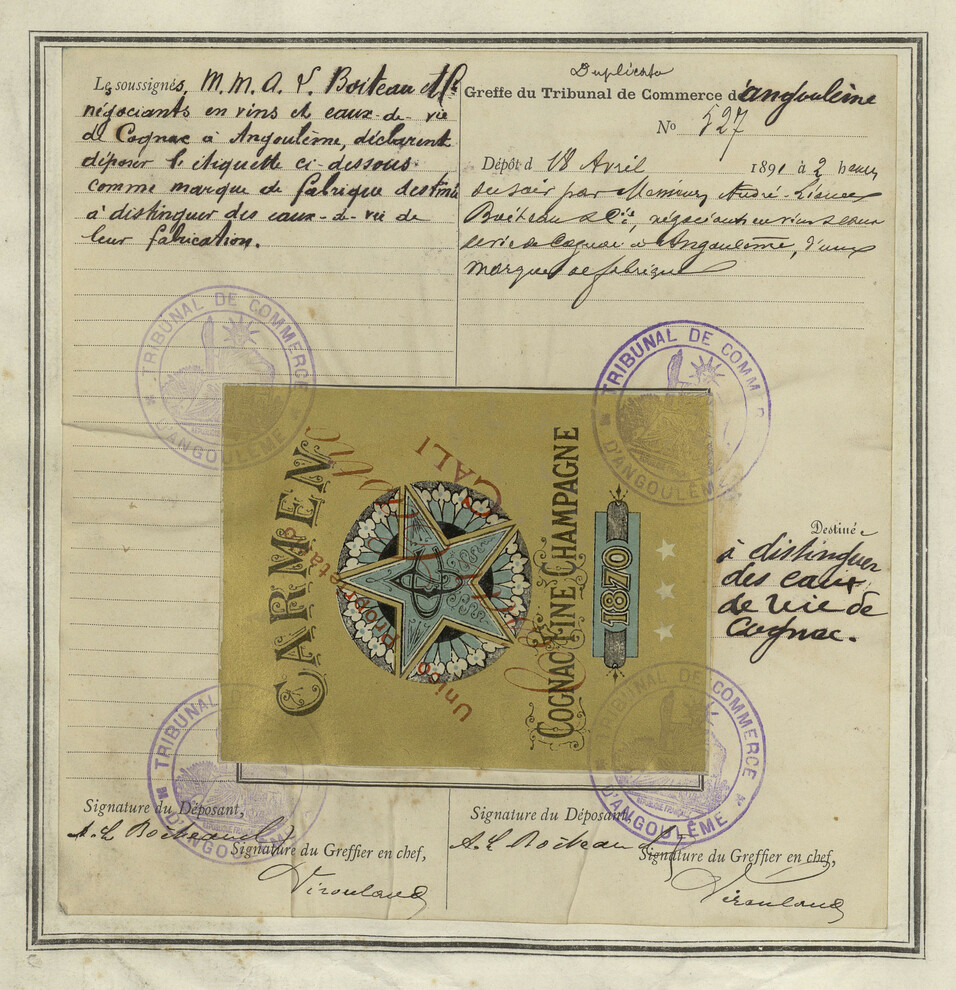 Les soussignés, M.M. A. L. Boiteau et Cie
négociants en vins et eaux-de-vie
de Cognac à Angoulême, déclarent
déposer l'étiquette ci-dessous
comme marque de fabrique destinée
à distinguer des eaux-de-vie de
leur fabrication.
Duplicata
Greffe du Tribunal de Commerce d'angoulême
No 527
Dépôt d 18 Avril 1891 à 2 heures
du soir par Messieurs André-Léonce
Boiteau & Cie, négociants en vins & eaux
de vie de Cognac à Angoulême, d'une
marque de fabrique
TRIBUNAL DE COMMERCE
D'ANGOULÊME
TRIBUNAL DE COMM
D'ANGOULÊME
CARMEN
COGNAC FINE CHAMPAGNE
1870
CALI
Unico
Proprietario
Destiné
à distinguer
des eaux
de vie de
Cognac.
TRIBUNAL DE COMMERCE
D'ANGOULÊME
TRIBUNAL DE COMMERCE
RÉPUBLIQUE FRANÇAISE
D'ANGOULÊME
Signature du Déposant,
A. L. Boiteau &
Signature du Greffier en chef,
Signature du Déposant,
A. L. Boiteau &
Signature du Greffier en chef,